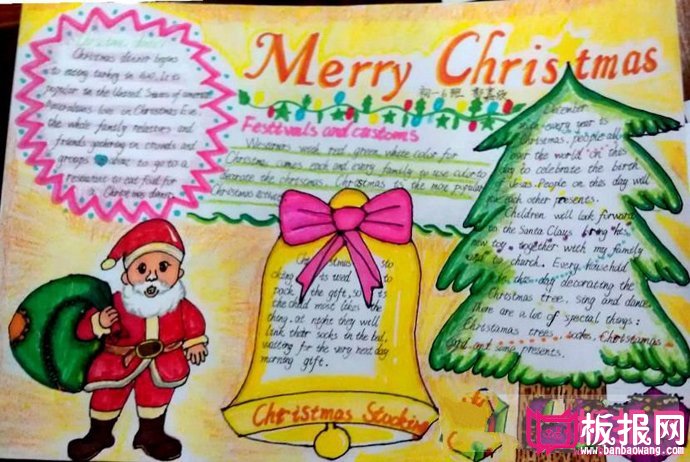 Merry Christmas
初一6班
Christmas dinner
Christmas dinner begins
to eating turkey in 1620. It is
popular in the United States of america
Americans live in Christmas Eve.
the whole family relatives and
friends gathering in crowds and
groups want to go to a
restaurant to eat food for
a Christmas dinner
Festivals and castoms
Westerners week red green white color for
Christmas comes each and every family go use color to
decorate the christmas. Christmas is the most popular
Christmas
December
every year is
Christmas, people all
over the world on this
day to celebrate the birth
Jesus. People on this day will
each other presents.
Children will look forward
to the Santa Claus bring his
new toy. together with my family
to charch. Every household
is this day decorating the
Christmas tree. sing and dance.
There are a lot of special things:
Christamas trees, socks, Christamas
and some presents.
Christmas sto
cking is used to
pack the gift, so is
the child most likes the
thing. at night they will
link their socks in the bed,
waiting for the very next day
morning gift.
Christmas Stocking
板报网
www.banbaowang.com